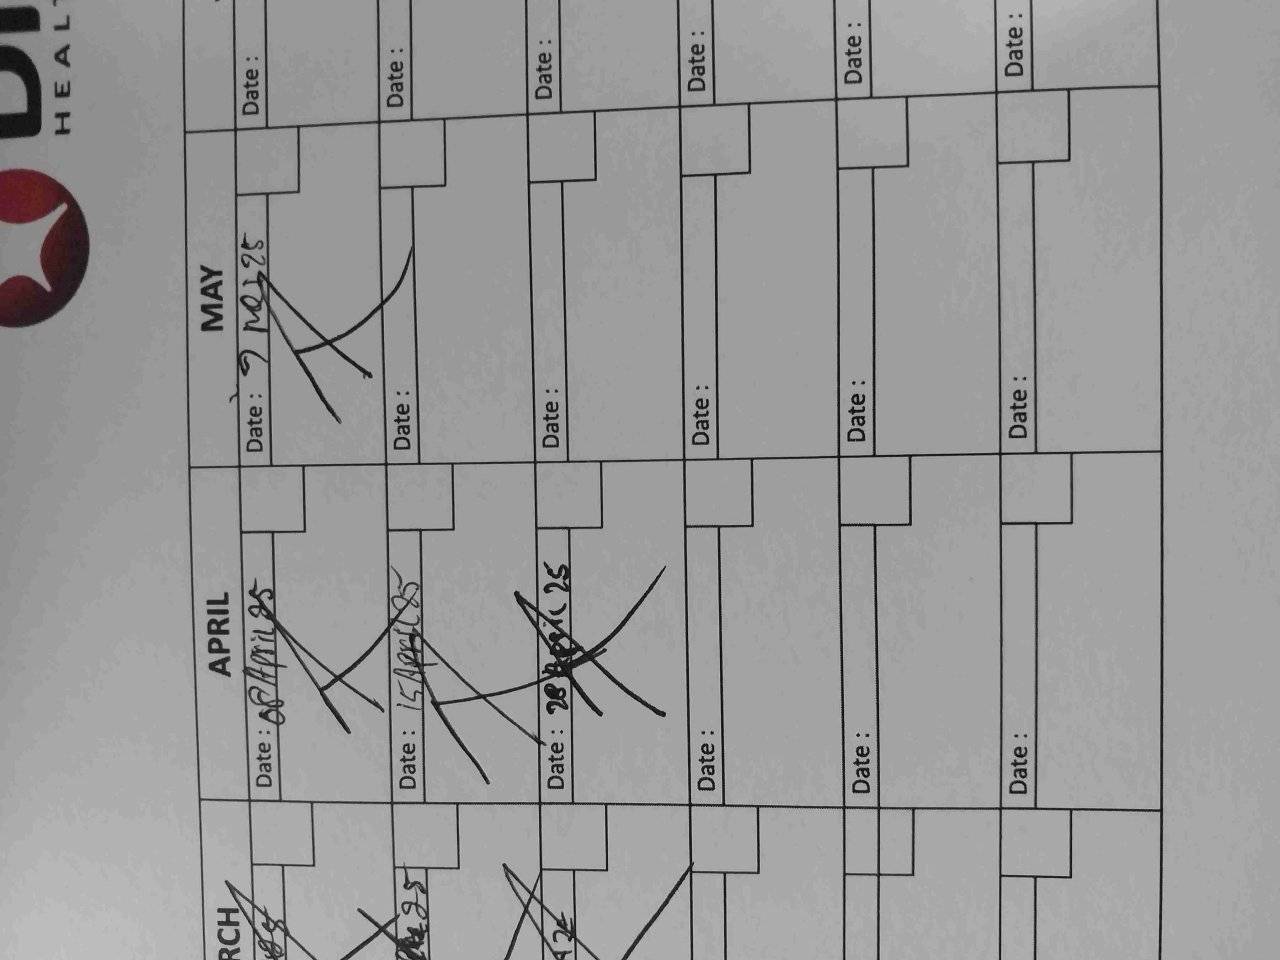 HEAL
RCH
APRIL
MAY
Date : 08 April 25
Date : 9 May 25
Date :
25
Date : 15 April 25
Date :
Date :
Date : 28 April 25
Date :
Date :
Date :
Date :
Date :
Date :
Date :
Date :
Date :
Date :
Date :